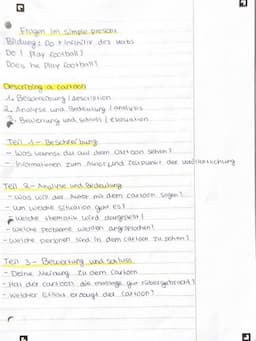 Fragen im simple present
Bildung: Do + Infinitiv des Verbs
Do I play football?
Does he play football?
Describing a cartoon
1. Beschreibung / description
2. Analyse und Bedeutung / analysis
3. Bewertung und Schluss / evaluation
Teil 1 - Beschreibung
- Was kannst du auf dem Cartoon sehen?
- Informationen zum Autor und Zeitpunkt der Veröffentlichung
Teil 2 - Analyse und Bedeutung
- Was will der Autor mit dem Cartoon sagen?
- Um welche Situation geht es?
- Welche Thematik wird dargestellt?
- Welche Probleme werden angesprochen?
- Welche Personen sind in dem Cartoon zu sehen?
Teil 3 - Bewertung und Schluss
- Deine Meinung zu dem Cartoon
- Hat der Cartoon die message gut rübergebracht?
- Welcher Effekt erzeugt der Cartoon?